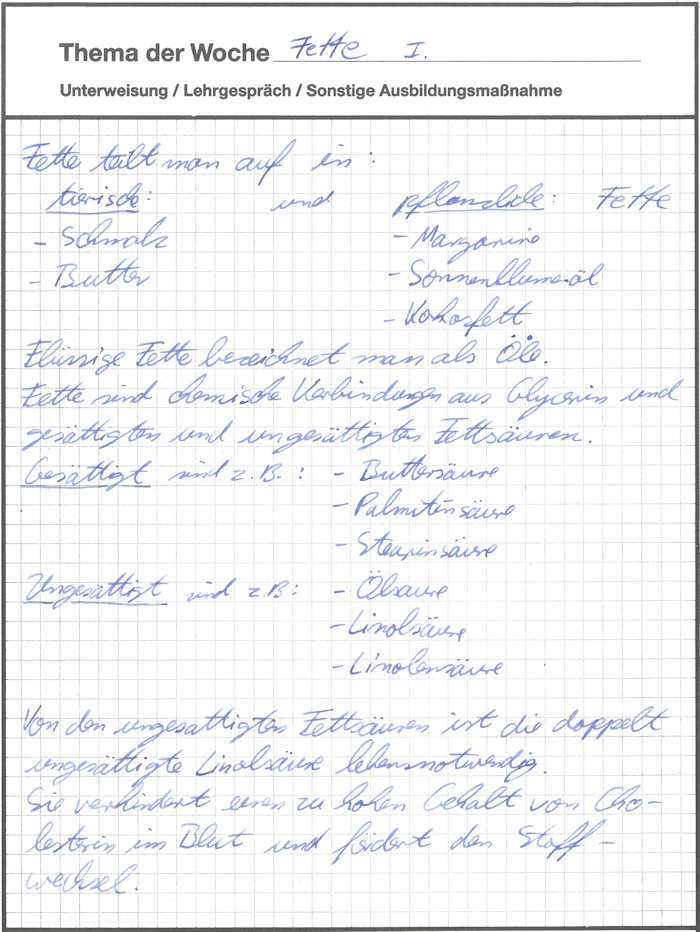 Thema der Woche Fette I.
Unterweisung / Lehrgespräch / Sonstige Ausbildungsmaßnahme
Fette teilt man auf in:
tierische: und pflanzliche: Fette
- Schmalz - Margarine
- Butter - Sonnenblumenöl
- Kokosfett
Flüssige Fette bezeichnet man als Öle.
Fette sind chemische Verbindungen aus Glycerin und
gesättigten und ungesättigten Fettsäuren.
Gesättigt sind z.B.: - Buttersäure
- Palmitinsäure
- Stearinsäure
Ungesättigt sind z.B: - Ölsäure
- Linolsäure
- Linolensäure
Von den ungesättigten Fettsäuren ist die doppelt
ungesättigte Linolsäure lebensnotwendig.
Sie verhindert einen zu hohen Gehalt von Cho-
lesterin im Blut und fördert den Stoff-
wechsel.